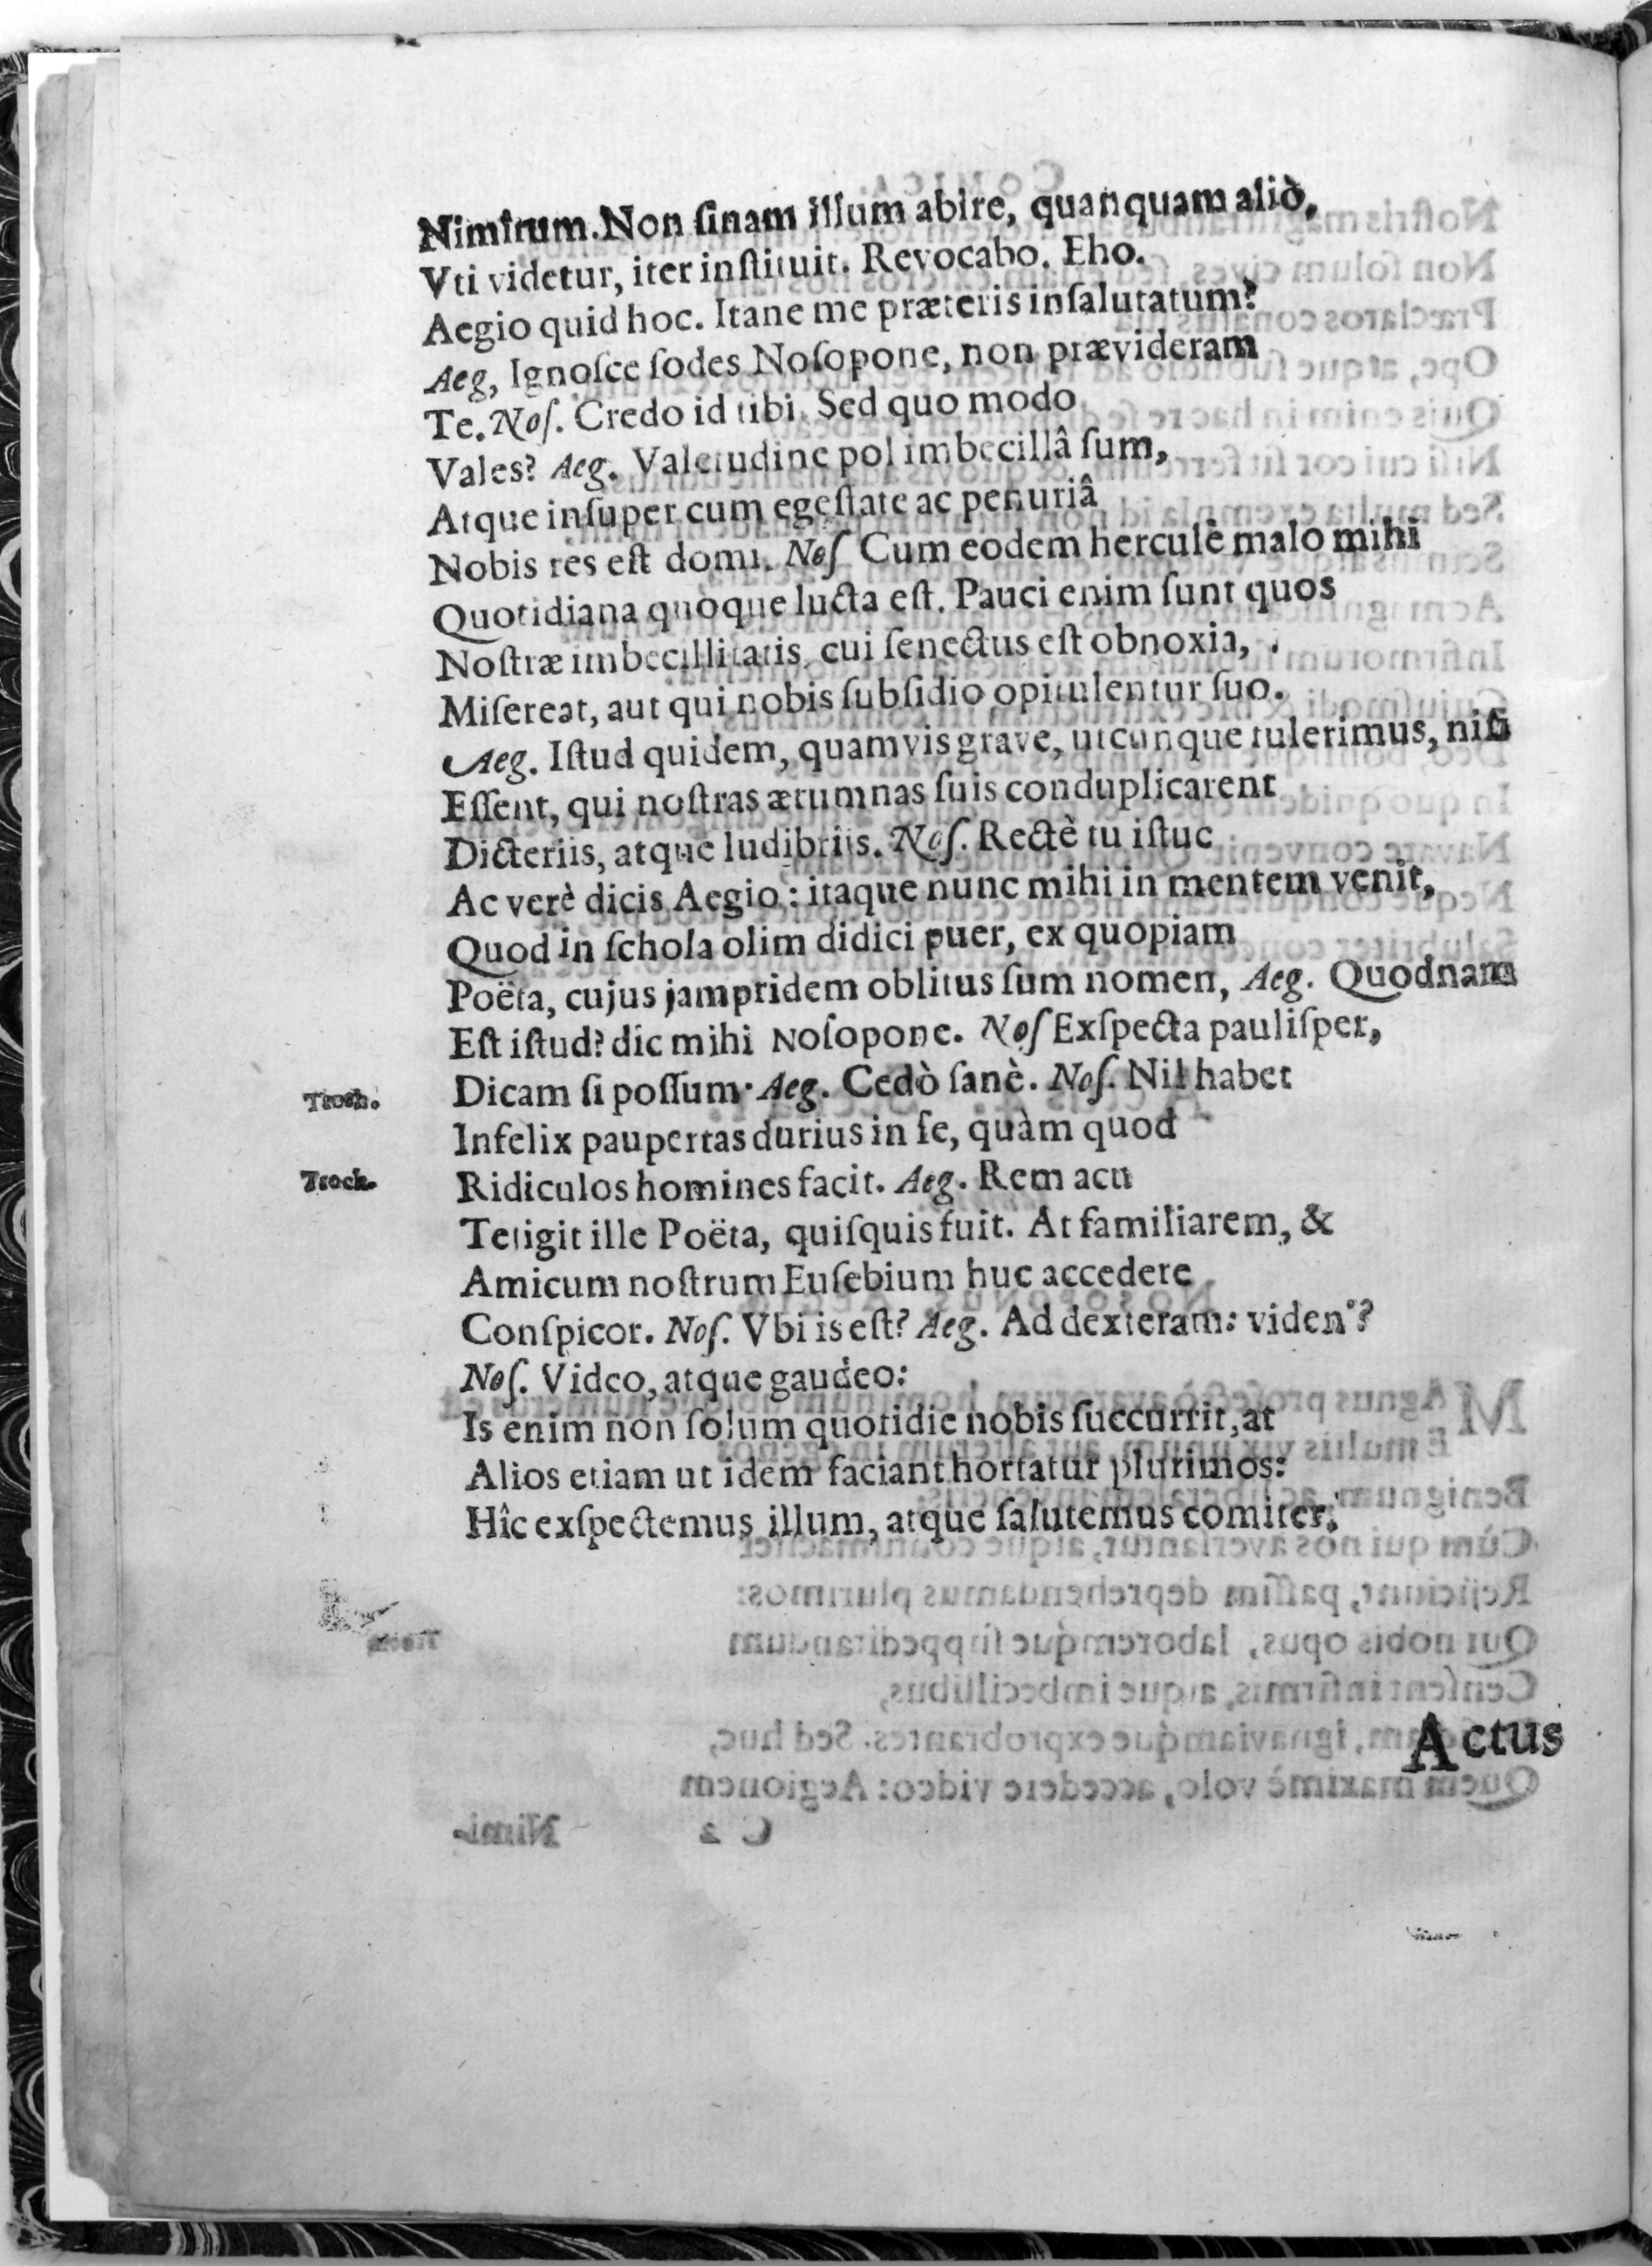 Nimirum. Non ſinam illum abire, quanquam aliò,
Vti videtur, iter inſtituit. Revocabo. Eho.
Aegio quid hoc. Itane me præteris inſalutatum?
Aeg, Ignoſce ſodes Noſopone, non prævideram
Te. Noſ. Credo id tibi. Sed quo modo
Vales? Aeg. Valetudine pol imbecillâ ſum,
Atque inſuper cum egeſtate ac penuriâ
Nobis res eſt domi. Noſ Cum eodem herculè malo mihi
Quotidiana quòque lucta eſt. Pauci enim ſunt quos
Noſtræ imbecillitatis, cui ſenectus eſt obnoxia,
Miſereat, aut qui nobis ſubſidio opitulentur ſuo.
Aeg. Iſtud quidem, quamvis grave, utcunque tulerimus, niſi
Eſſent, qui noſtras ærumnas ſuis conduplicarent
Dicteriis, atque ludibriis. Noſ. Rectè tu iſtuc
Ac verè dicis Aegio: itaque nunc mihi in mentem venit,
Quod in ſchola olim didici puer, ex quopiam
Poëta, cujus jampridem oblitus ſum nomen, Aeg. Quodnam
Eſt iſtud? dic mihi Noſopone. Noſ Exſpecta pauliſper,
Troch. Dicam ſi poſſum· Aeg. Cedò ſanè. Noſ. Nil habet
Infelix paupertas durius in ſe, quàm quod
Troch. Ridiculos homines facit. Aeg. Rem acu
Tetigit ille Poëta, quiſquis fuit. At familiarem, &
Amicum noſtrum Euſebium huc accedere
Conſpicor. Noſ. Vbi is eſt? Aeg. Ad dexteram: viden'?
Noſ. Video, atque gaudeo:
Is enim non ſolum quotidie nobis ſuccurrit, at
Alios etiam ut idem faciant hortatur plurimos:
Hîc exſpectemus illum, atque ſalutemus comiter.
Actus